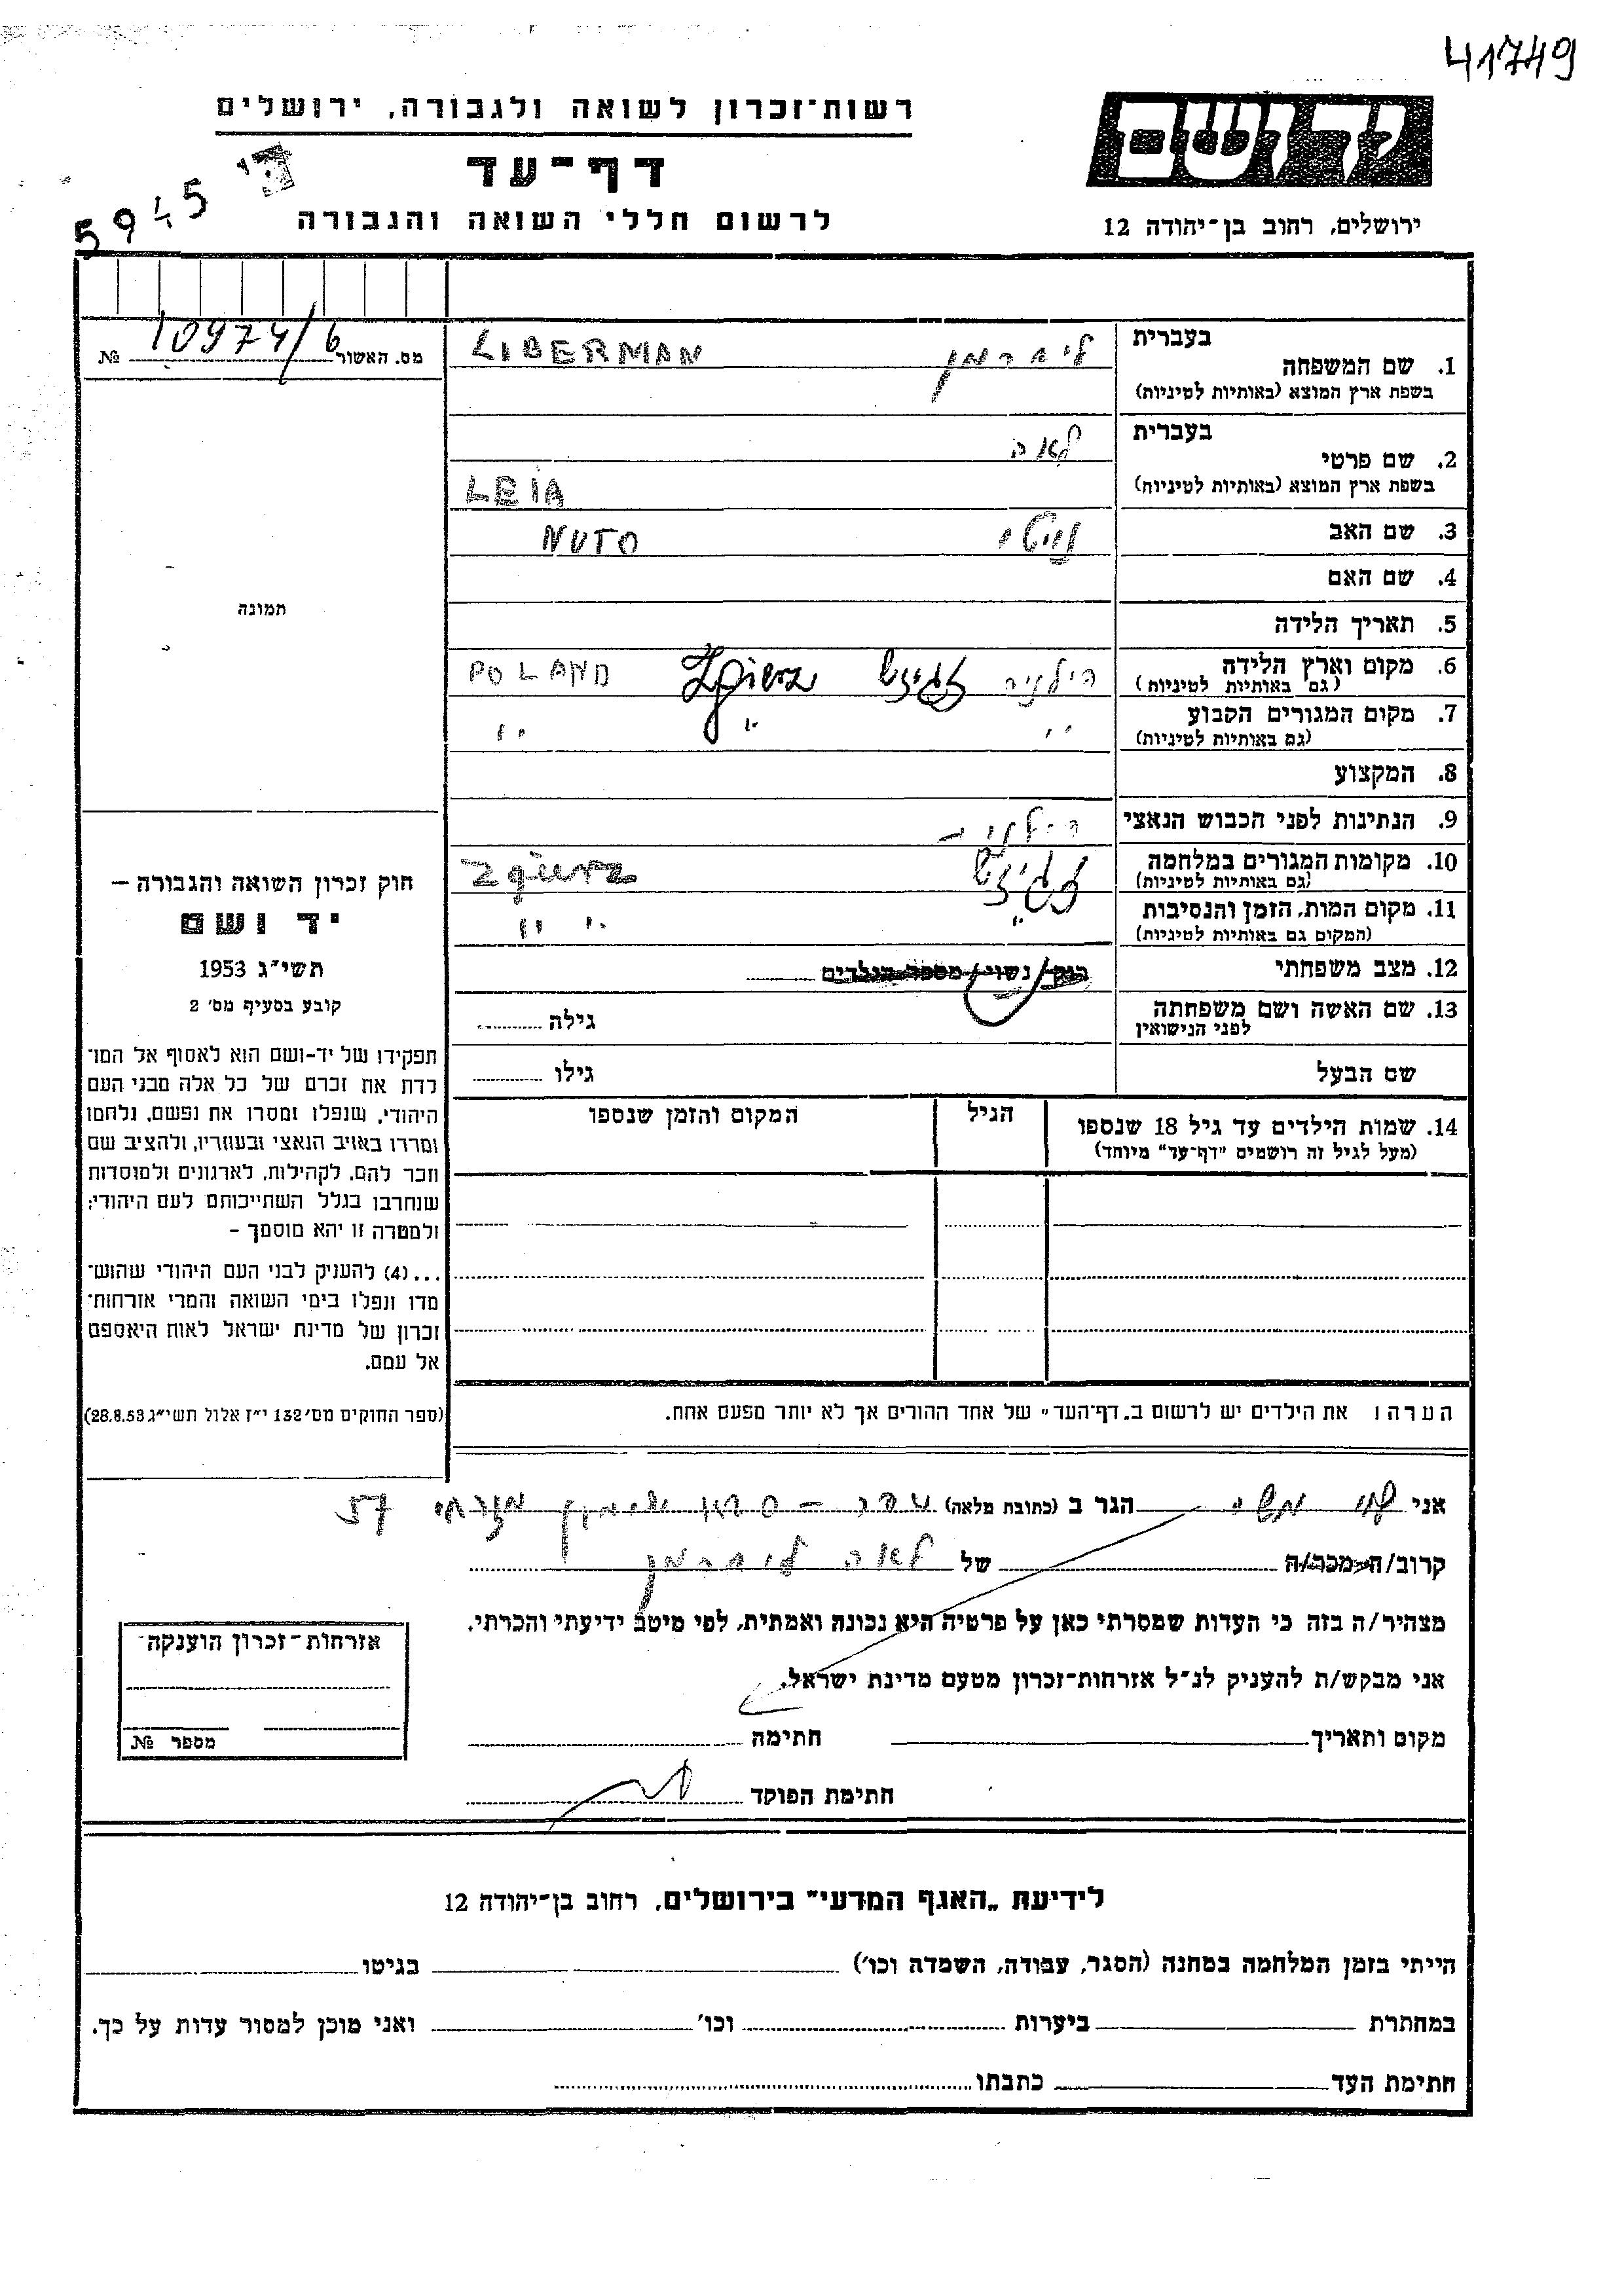 41749
רשות־זכרון לשואה ולגבורה, ירושלים
יד ושם
דף־עד
5945
לרשום חללי השואה והגבורה
ירושלים, רחוב בן־יהודה 12
מס. האשור 10974/6 №
בעברית
1. שם המשפחה ליברמן LIBERMAN
בשפת ארץ המוצא (באותיות לטיניות)
בעברית
2. שם פרטי לאה
בשפת ארץ המוצא (באותיות לטיניות) LEIA
3. שם האב NUTO
4. שם האם
5. תאריך הלידה
6. מקום וארץ הלידה זגירז' Zgierz POLAND
(גם באותיות לטיניות)
7. מקום המגורים הקבוע " " "
(גם באותיות לטיניות)
8. המקצוע
9. הנתינות לפני הכבוש הנאצי
10. מקומות המגורים במלחמה זגירז' Zgierz
(גם באותיות לטיניות)
11. מקום המות, הזמן והנסיבות " " "
(המקום גם באותיות לטיניות)
12. מצב משפחתי רוק/נשוי/מספר הילדים
13. שם האשה ושם משפחתה גילה
לפני הנישואין
שם הבעל גילו
14. שמות הילדים עד גיל 18 שנספו הגיל המקום והזמן שנספו
(מעל לגיל זה רושמים "דף־עד" מיוחד)
הערה: את הילדים יש לרשום ב„דף־העד" של אחד ההורים אך לא יותר מפעם אחת.
תמונה
חוק זכרון השואה והגבורה –
יד ושם
תשי"ג 1953
קובע בסעיף מס' 2
תפקידו של יד-ושם הוא לאסוף אל המו־
לדת את זכרם של כל אלה מבני העם
היהודי, שנפלו ומסרו את נפשם, נלחמו
ומרדו באויב הנאצי ובעוזריו, ולהציב שם
וזכר להם, לקהילות, לארגונים ולמוסדות
שנחרבו בגלל השתייכותם לעם היהודי;
ולמטרה זו יהא מוסמך –
...(4) להעניק לבני העם היהודי שהוש־
מדו ונפלו בימי השואה והמרי אזרחות־
זכרון של מדינת ישראל לאות היאספם
אל עמם.
(ספר החוקים מס' 132 י"ז אלול תשי"ג 28.8.53)
אני הגר ב (כתובת מלאה) 57
קרוב/ה מכר/ה של לאה ליברמן
מצהיר/ה בזה כי העדות שמסרתי כאן על פרטיה היא נכונה ואמתית, לפי מיטב ידיעתי והכרתי.
אני מבקש/ת להעניק לנ"ל אזרחות־זכרון מטעם מדינת ישראל.
מקום ותאריך חתימה
חתימת הפוקד
אזרחות־זכרון הוענקה
מספר №
לידיעת „האגף המדעי" בירושלים, רחוב בן־יהודה 12
הייתי בזמן המלחמה במחנה (הסגר, עבודה, השמדה וכו') בגיטו
במחתרת ביערות וכו' ואני מוכן למסור עדות על כך.
חתימת העד כתבתו